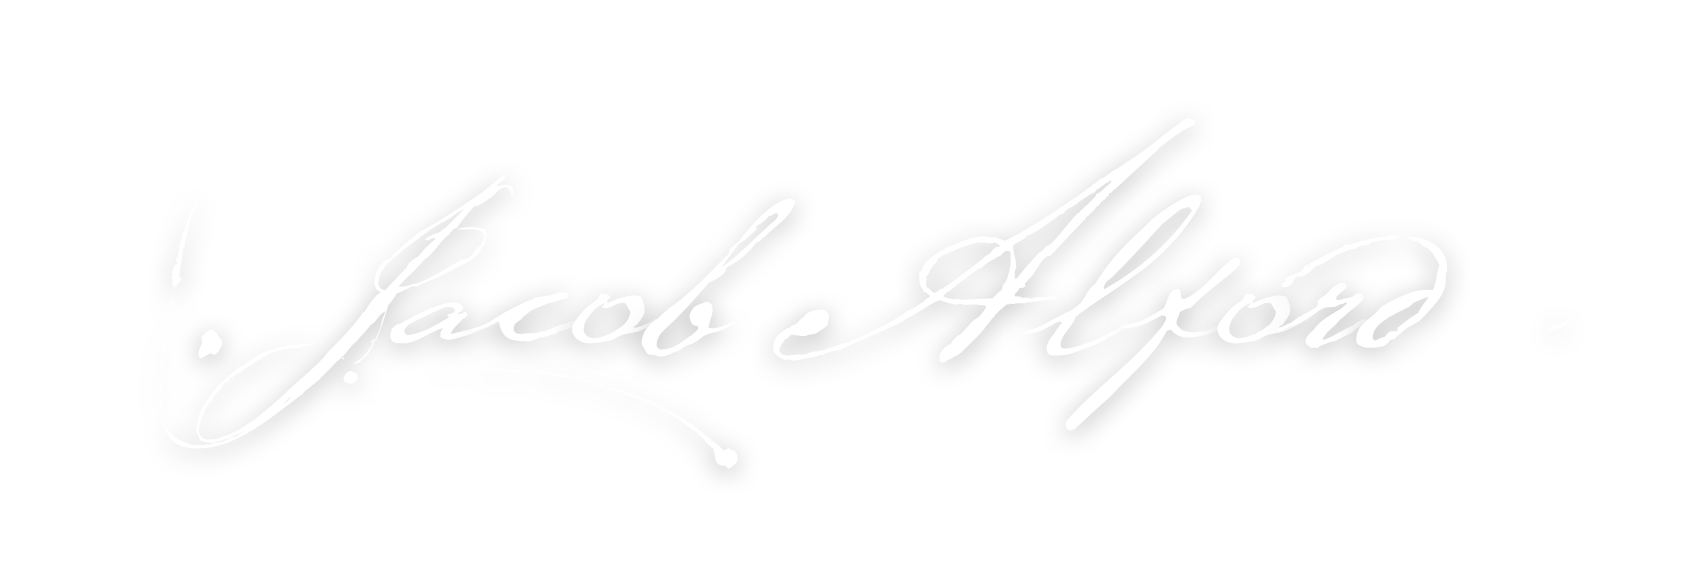 Jacob Alford